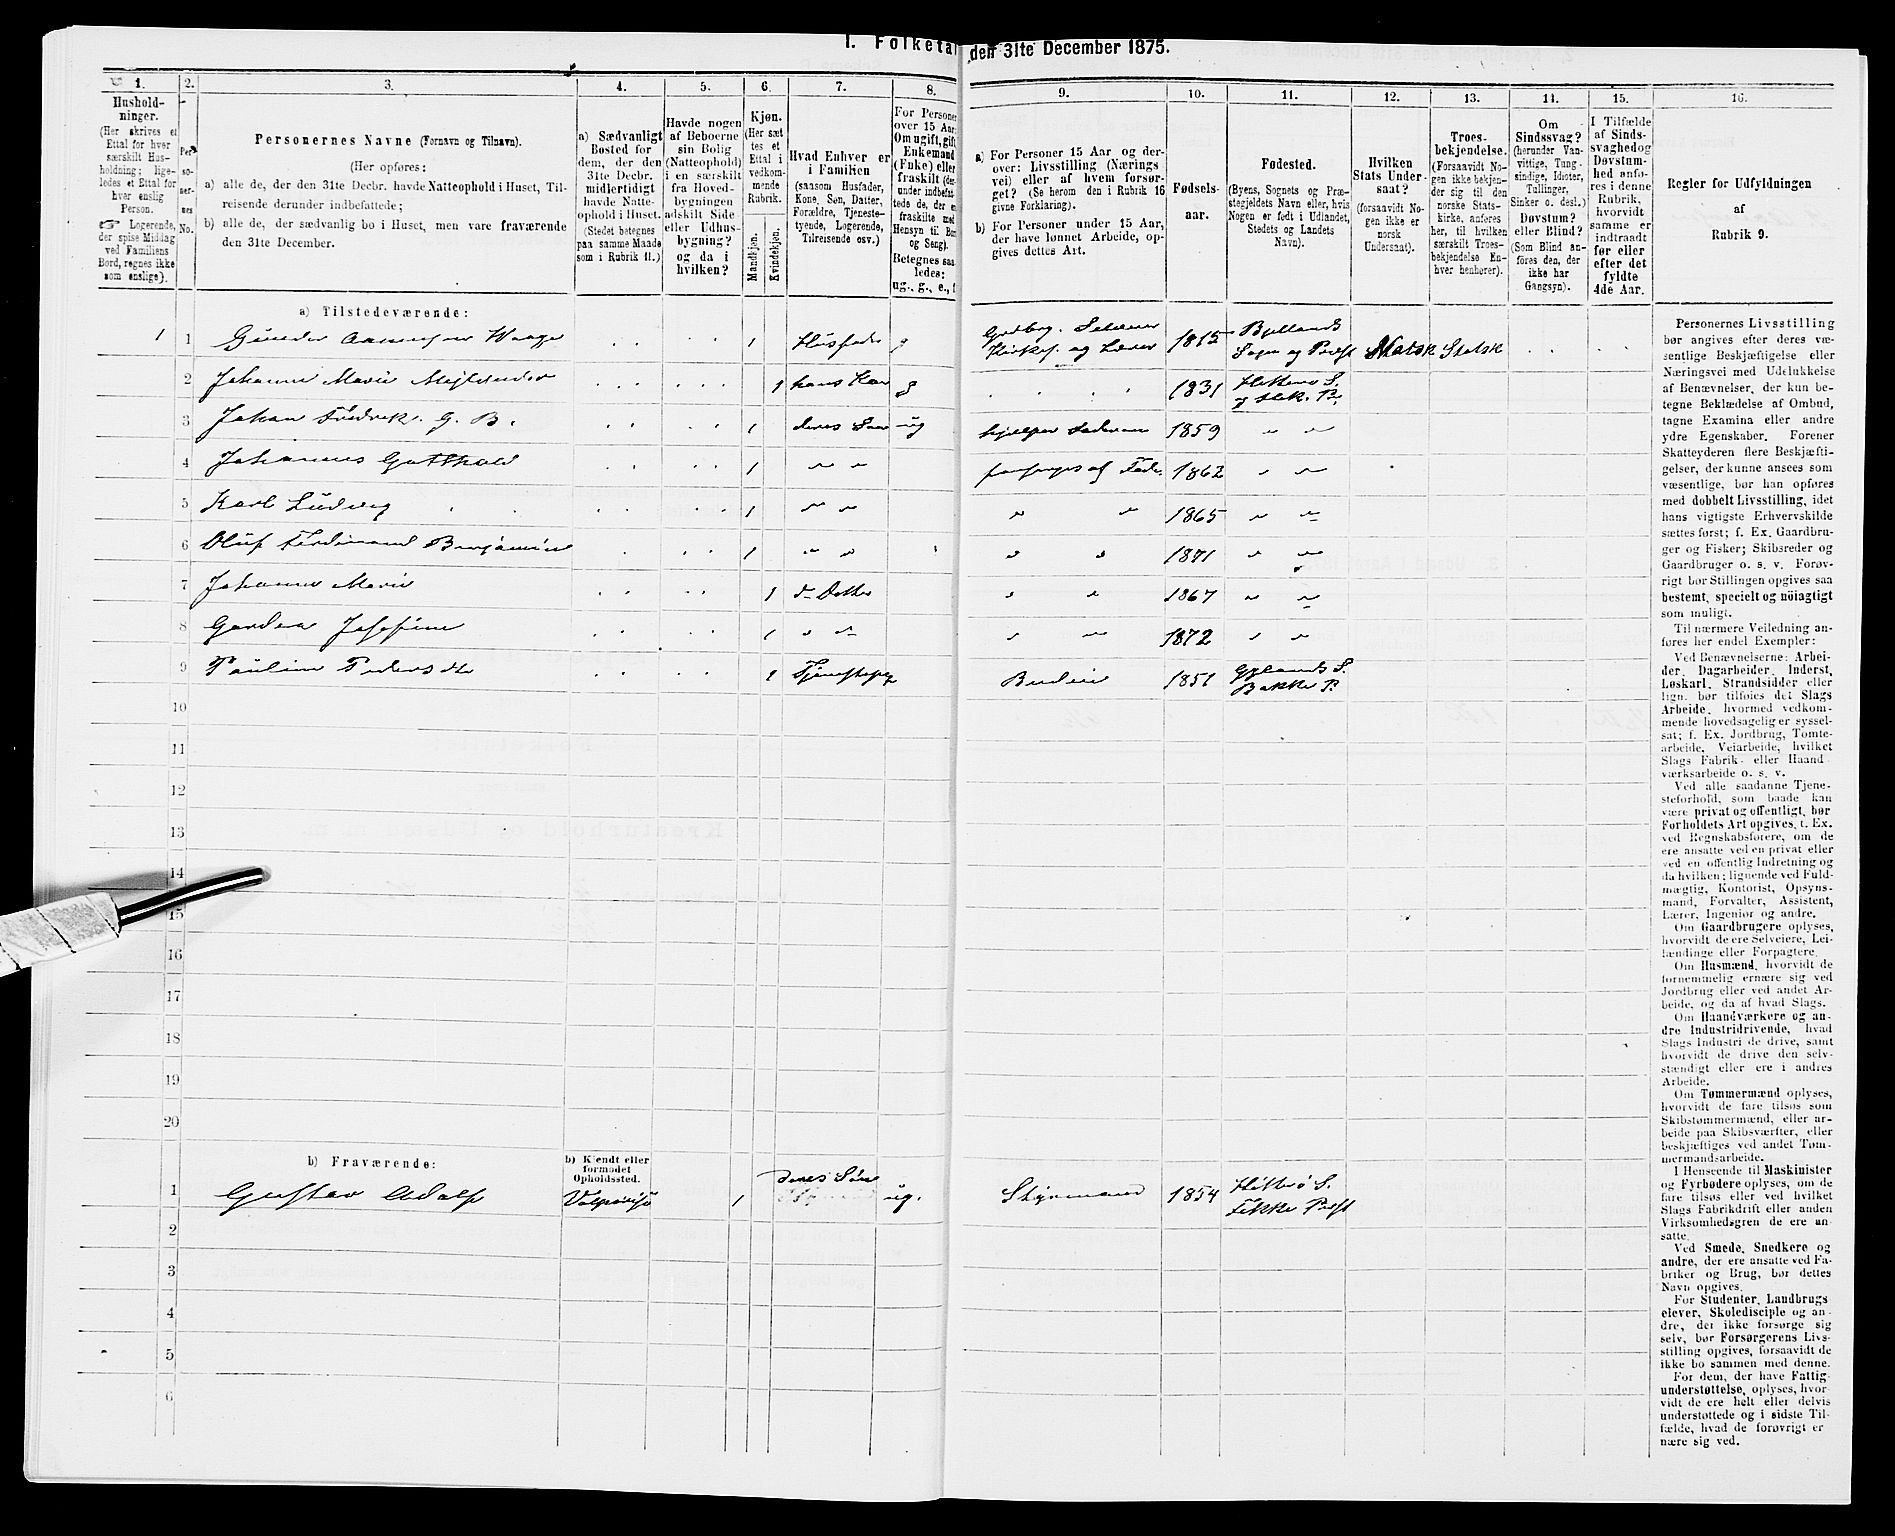 1. Folketal den 31te December 1875.
1. 2. 3. 4. 5. 6. 7. 8. 9. 10. 11. 12. 13. 14. 15. 16.
Hushold-
ninger.
(Her skrives et
Ettal for hver
særskilt Hus-
holdning; lige-
ledes et Ettal for
hver enslig
Person.
☞ Logerende,
der spise Middag
ved Familiens
Bord, regnes ikke
som enslige).
Per-
so-
ner-
nes
No.
Personernes Navne (Fornavn og Tilnavn).
(Her opføres:
a) alle de, der den 31te Decbr. havde Natteophold i Huset, Til-
reisende derunder indbefattede;
b) alle de, der sædvanlig bo i Huset, men vare fraværende
den 31te December.
a) Sædvanligt
Bosted for
dem, der den
31te Decbr.
midlertidigt
havde Natte-
ophold i Huset.
(Stedet betegnes
paa samme Maade
som i Rubrik 11.)
Havde nogen
af Beboerne
sin Bolig
(Natteophold)
i en særskilt
fra Hoved-
bygningen
adskilt Side
eller Udhus-
bygning?
og da i
hvilken?
Kjøn.
(Her sæt
tes et
Ettal i
vedkom-
mende
Rubrik.
Mandkjøn.
Kvindekjøn.
Hvad Enhver er
i Familien
(saasom Husfader,
Kone, Søn, Datter,
Forældre, Tjeneste-
tyende, Logerende,
Tilreisende osv.)
For Persone
over 15 Aar
Om ugift, gift
Enkemand
(Fuke) eller
fraskilt (der
under indbefat
tede de, der e
fraskilte med
Hensyn til Bor
og Seng).
Betegnes saa
ledes:
ug., g., e., f
a) For Personer 15 Aar og der-
over: Livsstilling (Nærings
vei) eller af hvem forsør-
get? (Se herom den i Rubrik 16
givne Forklaring).
b) For Personer under 15 Aar,
der have lønnet Arbeide, op-
gives dettes Art.
Fødsels-
aar.
Fødested.
(Byens, Sognets og Præ-
stegjeldets Navn eller, hvis
Nogen er født i Udlandet,
Stedets og Landets
Navn).
Hvilken
Stats Under
saat?
(forsaavidt No-
gen ikke er
norsk
Undersaat).
Troes-
bekjendelse.
(Forsaavidt No-
gen ikke bekjen-
der sig til den
norske Stats-
kirke, anføres
her, til hvilken
særskilt Troes-
bekjendelse En-
hver henhører).
Om
Sindssvag?
(herunder Van-
vittige, Tung-
sindige, Idioter,
Tullinger,
Sinker o. desl.)
Døvstum?
eller Blind?
(Som Blind an-
føres den, der
ikke har
Gangsyn).
I Tilfælde
af Sinds-
svaghed og
Døvstum-
hed anfø-
res i denne
Rubrik,
hvorvidt
samme er
indtraadt
før eller
efter det
fyldte
4de Aar.
Regler for Udfyldningen
af
Rubrik 9.
a) Tilstedeværende:
1 1 Gunder Aanensen Waage 1 Husfader g Gardbrg. Selveier Kirkes. og Lærer 1815 Bjellands Sogn og Præst Norsk Statsk
2 Johanne Marie 1 hans Kone g 1831 Hitterø S.
3 Johan Fredrik G. B. 1 deres Søn ug hjælper Faderen 1859 " "
4 Johannes Gotthold 1 " " forsørges af Fade. 1862 " "
5 Karl Ludvig 1 " " " " 1865 " "
6 Oluf Ferdinand Benjamin 1 " " " " 1871 " "
7 Johanne Marie 1 d– Datter " " 1867 " "
8 Josefine 1 " d– " " 1872 " "
9 Pauline Pedersdtr 1 Tjenestepige Budeie 1851 Gylands S. Bakke P.
10
11
12
13
14
15
16
17
18
19
20
b) Fraværende:
b) Kjendt eller
formodet
Opholdssted.
1 Gustav Adolf Valparaiso 1 deres Søn ug. Styrmand 1854 Hitterø S. Fekke Præst
2
3
4
5
6
Personernes Livsstilling
bør angives efter deres væ-
sentlige Beskjæftigelse eller
Næringsvei med Udelukkelse
af Benævnelser, der kun be-
tegne Beklædelse af Ombud,
tagne Examina eller andre
ydre Egenskaber. Forener
Skatteyderen flere Beskjæfti-
gelser, der kunne ansees som
væsentlige, bør han opføres
med dobbelt Livsstilling, idet
hans vigtigste Erhvervskilde
sættes først; f. Ex. Gaardbru-
ger og Fisker; Skibsreder og
Gaardbruger o. s. v. Forøv-
rigt bør Stillingen opgives saa
bestemt, specielt og nöiagtigt
som muligt.
Til nærmere Veiledning an-
føres her endel Exempler:
Ved Benævnelserne: Arbei-
der, Dagarbeider, Inderst,
Løskarl, Strandsidder eller
lign. bør tilføies det Slags
Arbeide, hvormed vedkom-
mende hovedsagelig er syssel-
sat; f. Ex. Jordbrug, Tomte-
arbeide, Veiarbeide, hvilket
Slags Fabrik- eller Haand
værksarbeide o. s. v.
Ved alle saadanne Tjene-
steforhold, som baade kan
være privat og offentligt, bør
Forholdets Art opgives, f. Ex.
ved Regnskabsførere, om de
ere ansatte ved en privat eller
ved en offentlig Indretning og
da hvilken; lignende ved Fuld-
mægtig, Kontorist, Opsyns-
mand, Forvalter, Assistent,
Lærer, Ingeniør og andre.
Om Gaardbrugere oplyses,
hvorvidt de ere Selveiere, Lei-
lændinge eller Forpagtere.
Om Husmænd, hvorvidt de
fornemmelig ernære sig ved
Jordbrug eller ved andet Ar-
beide, og da af hvad Slags.
Om Haandværkere og an-
dre Industridrivende, hvad
Slags Industri de drive, samt
hvorvidt de drive den selv-
stændigt eller ere i andres
Arbeide.
Om Tømmermænd oplyses,
hvorvidt de fare tilsøs som
Skibstømmermænd, eller ar-
beide paa Skibsværfter, eller
beskjæftiges ved andet Tøm-
mermandsarbeide.
I Henseende til Maskinister
og Fyrbødere oplyses, om de
fare tilsøs eller ved hvilket
Slags Fabrikdrift eller anden
Virksomhedsgren de ere an-
satte.
Ved Smede, Snedkere og
andre, der ere ansatte ved Fa-
briker og Brug, bør dettes
Navn opgives.
For Studenter, Landbrugs
elever, Skoledisciple og an-
dre, der ikke forsørge sig
selv, bør Forsørgerens Livs-
stilling opgives, forsaavidt de
ikke bo sammen med denne.
For dem, der have Fattig-
understøttelse, oplyses, hvor-
vidt de ere helt eller delvis
understøttede og i sidste Til-
fælde, hvad de forøvrigt er
nære sig ved.